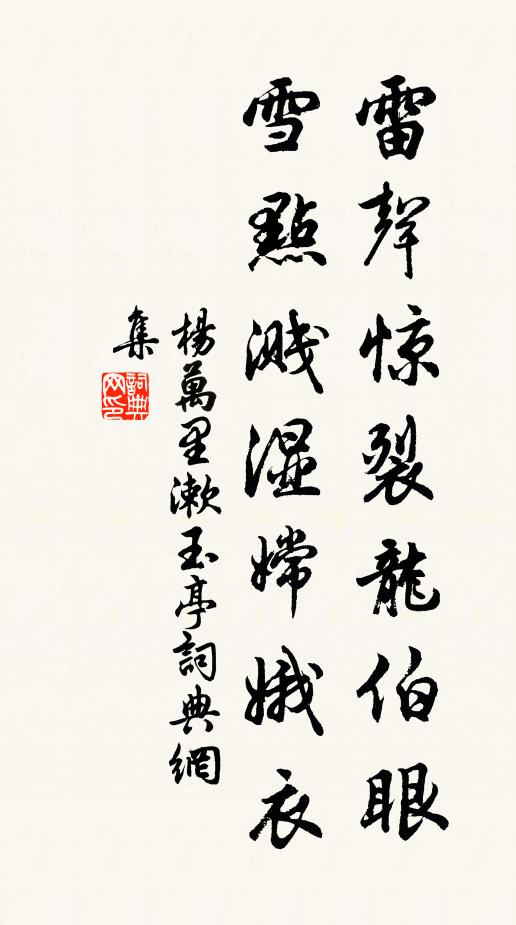 雷聲惊裂龍伯眼
雪點濺濕嫦娥衣
楊萬里漱玉亭詞典網
集
詞典
网印